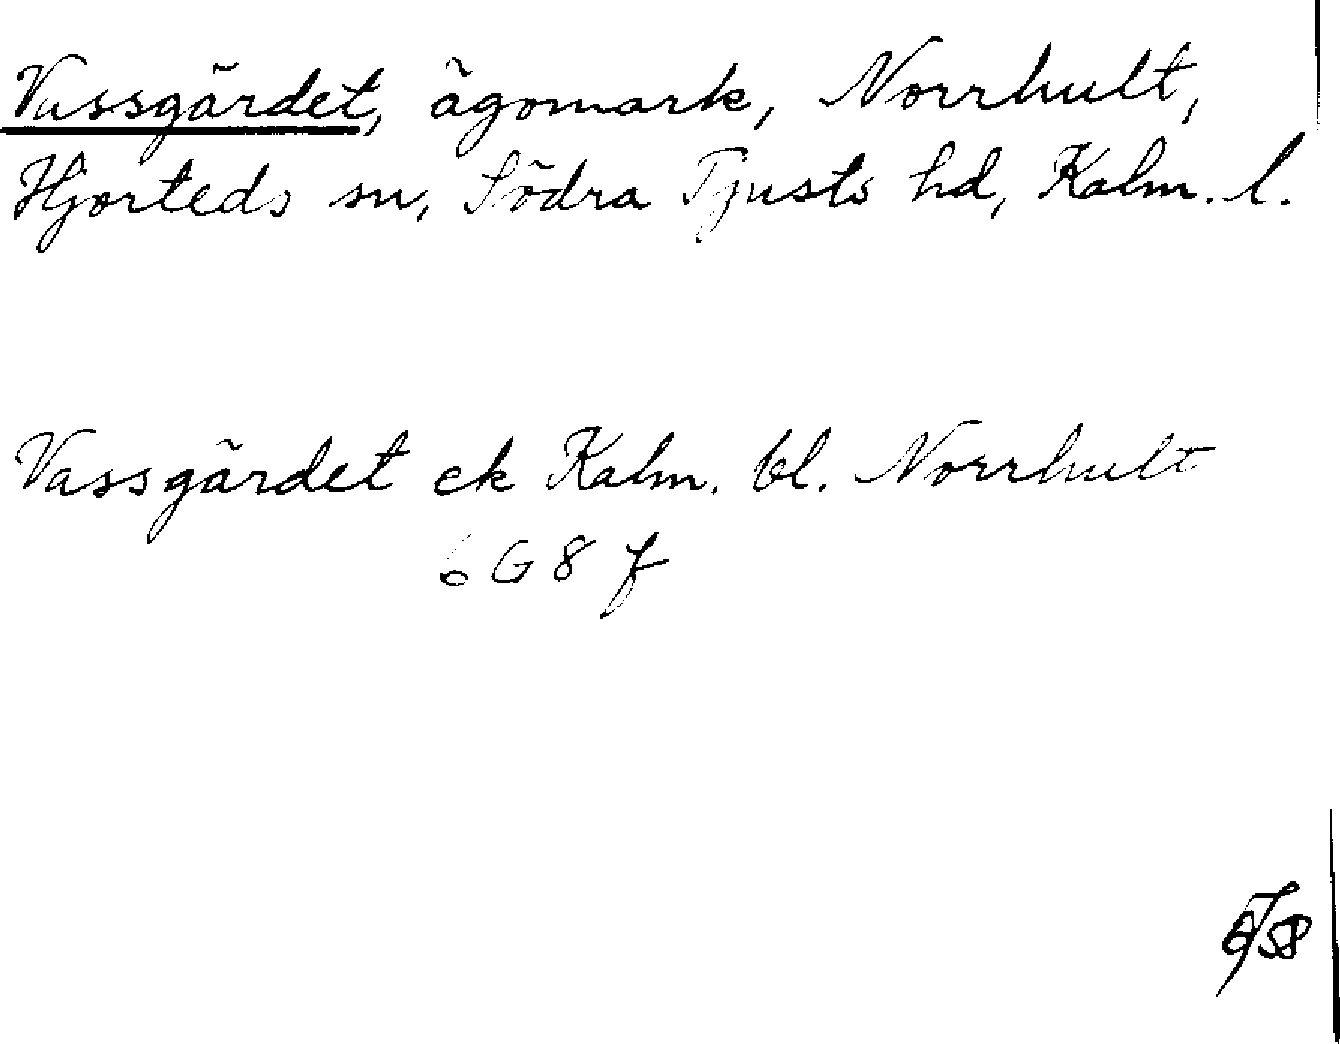 Vassgärdet, ägomark, Norrhult,
Hjorteds sn, Södra Tjusts hd, Kalm. l.
Vassgärdet ek Kalm. bl. Norrhult
6 G 8 f